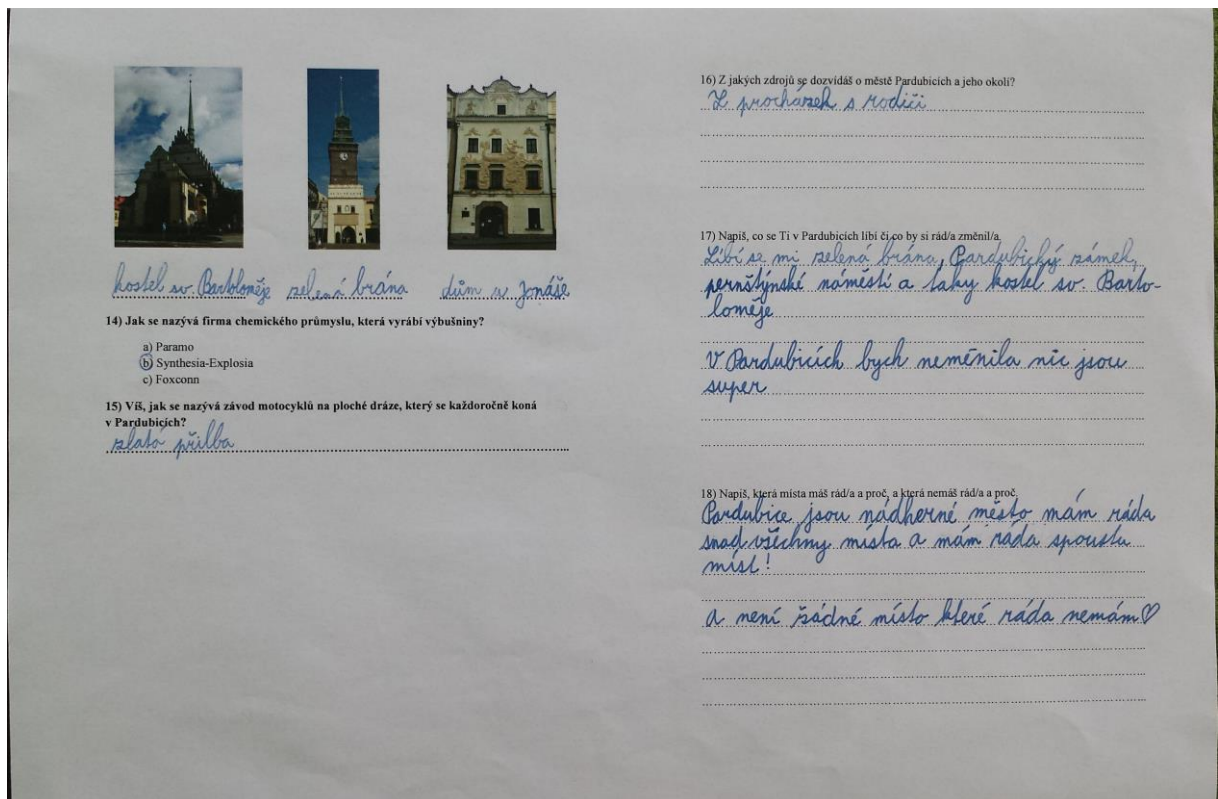 kostel sv. Bartoloměje zelená brána dům u Jonáše
14) Jak se nazývá firma chemického průmyslu, která vyrábí výbušniny?
a) Paramo
b) Synthesia-Explosia
c) Foxconn
15) Víš, jak se nazývá závod motocyklů na ploché dráze, který se každoročně koná
v Pardubicích?
zlatá přilba
16) Z jakých zdrojů se dozvídáš o městě Pardubicích a jeho okolí?
Z procházek s rodiči
17) Napiš, co se Ti v Pardubicích líbí či co by si rád/a změnil/a.
Líbí se mi zelená brána, Pardubický zámek,
pernštýnské náměstí a taky kostel sv. Barto-
loměje
V Pardubicích bych neměnila nic jsou
super
18) Napiš, která místa máš rád/a a proč, a která nemáš rád/a a proč.
Pardubice jsou nádherné město mám ráda
snad všechny místa a mám ráda spoustu
míst!
A není žádné místo které ráda nemám♡